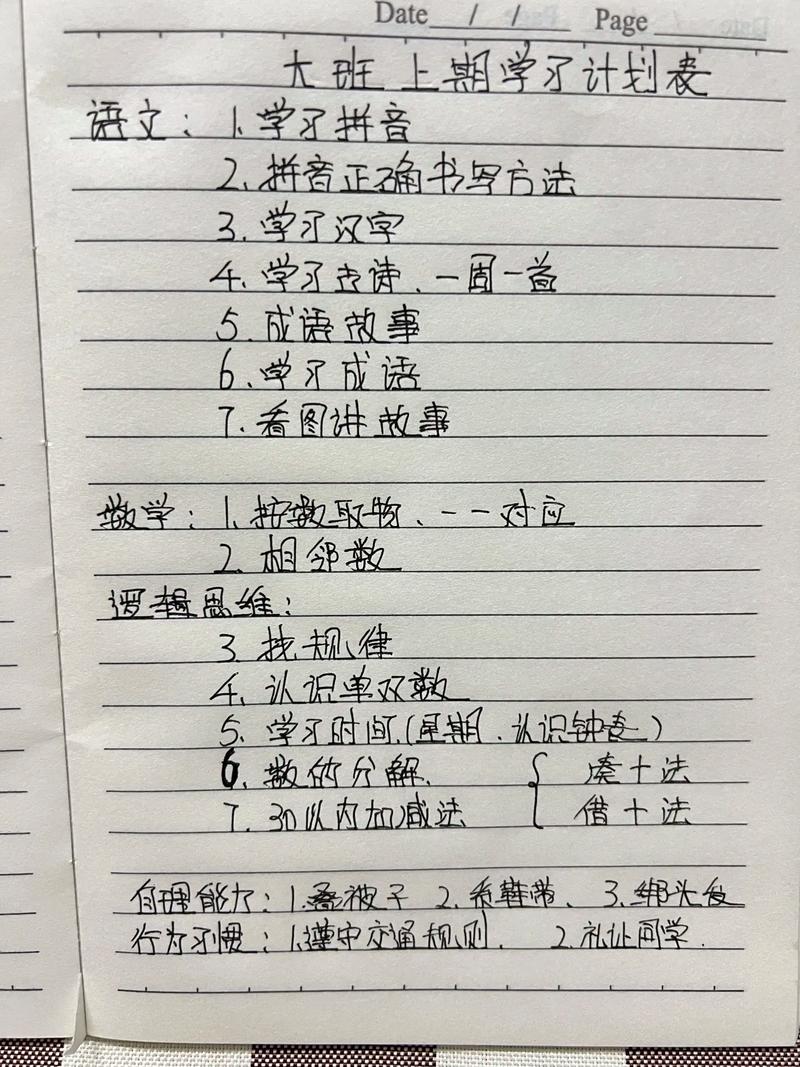 Date / / Page
大班上期学习计划表
语文：1.学习拼音
2.拼音正确书写方法
3.学习汉字
4.学习古诗、一周一首
5.成语故事
6.学习成语
7.看图讲故事
数学：1.按数取物、一一对应
2.相邻数
逻辑思维：
3.找规律
4.认识单双数
5.学习时间.(星期、认识钟表)
6.数的分解. { 凑十法
7.30以内加减法 借十法
自理能力：1.叠被子 2.系鞋带、3.绑头发
行为习惯：1.遵守交通规则. 2.礼让同学.